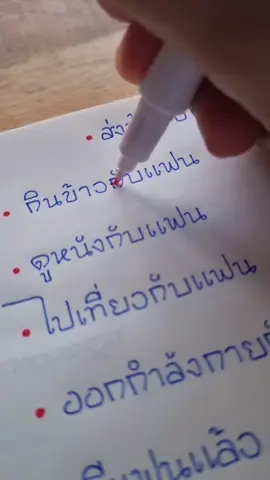 กินข้าวกับแฟน
ดูหนังกับแฟน
ไปเที่ยวกับแฟน
ออกกำลังกาย